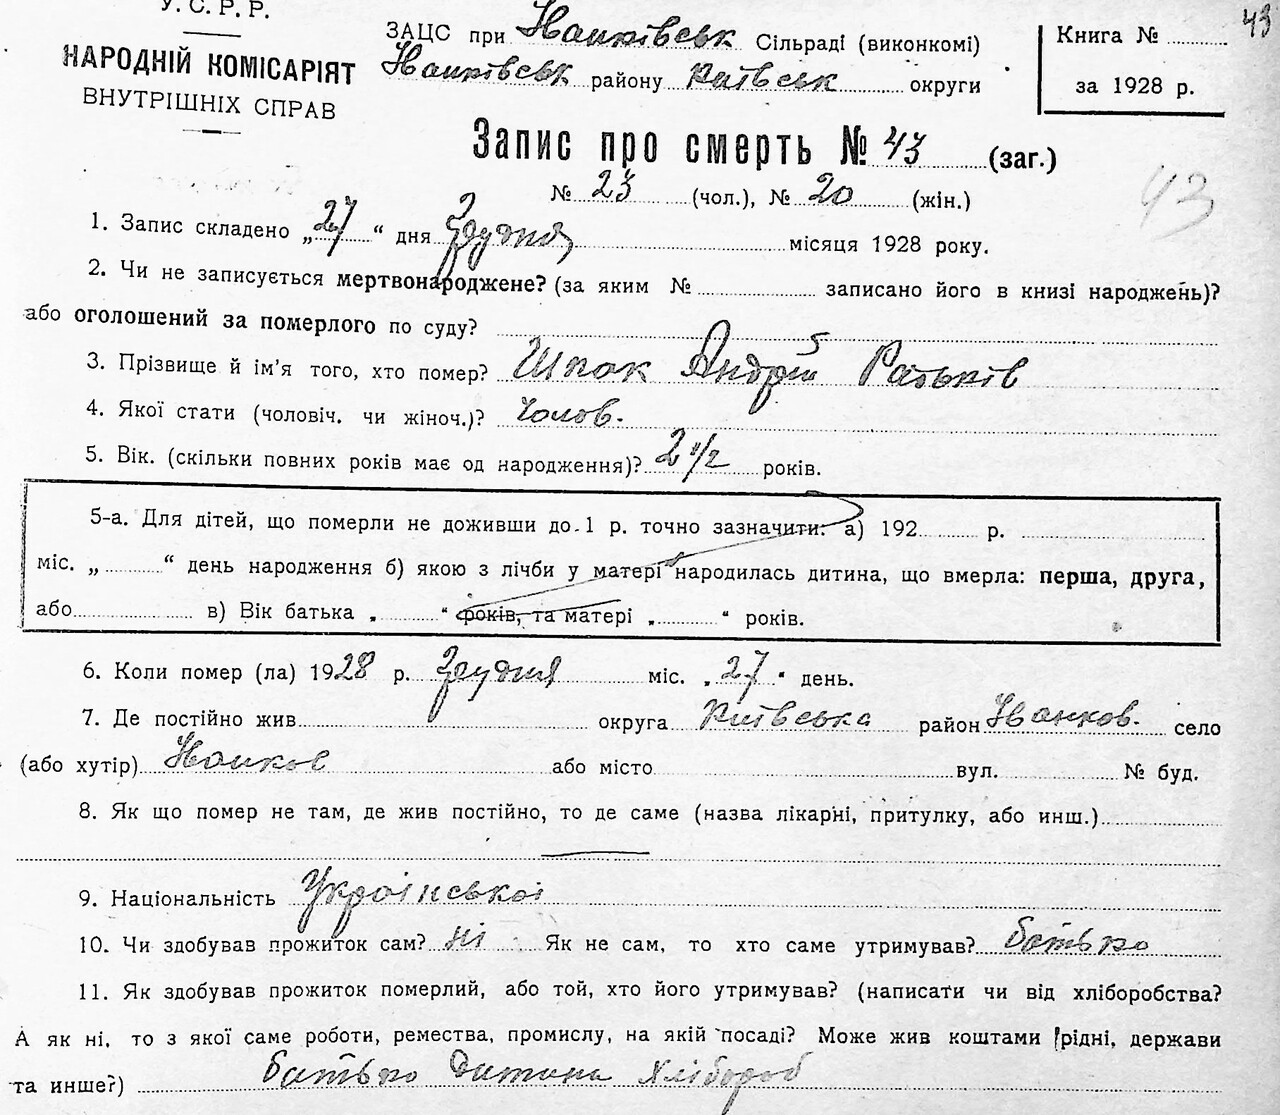 У. С. Р. Р.
НАРОДНІЙ КОМІСАРІЯТ
ВНУТРІШНІХ СПРАВ
ЗАЦС при Сільраді (виконкомі)
району Київськ округи
Книга №
за 1928 р.
43
Запис про смерть № 43 (заг.)
№ 23 (чол.), № 20 (жін.)
43
1. Запис складено „27“ дня Грудня місяця 1928 року.
2. Чи не записується мертвонароджене? (за яким № записано його в книзі народжень)?
або оголошений за померлого по суду?
3. Прізвище й ім'я того, хто помер? Шпак Андрій
4. Якої стати (чоловіч. чи жіноч.)? Чолов.
5. Вік. (скільки повних років має од народження)? 2 1/2 років.
5-а. Для дітей, що померли не доживши до 1 р. точно зазначити: а) 192 р.
міс. „ “ день народження б) якою з лічби у матері народилась дитина, що вмерла: перша, друга,
або в) Вік батька „ “ років, та матері „ “ років.
6. Коли помер (ла) 1928 р. Грудня міс. „27“ день.
7. Де постійно жив округа Київська район Іванков. село
(або хутір) або місто вул. № буд.
8. Як що помер не там, де жив постійно, то де саме (назва лікарні, притулку, або инш.)
9. Національність Української
10. Чи здобував прожиток сам? ні Як не сам, то хто саме утримував? батько
11. Як здобував прожиток померлий, або той, хто його утримував? (написати чи від хліборобства?
А як ні, то з якої саме роботи, ремества, промислу, на якій посаді? Може жив коштами рідні, держави
та инше?) батько дитини хлібороб